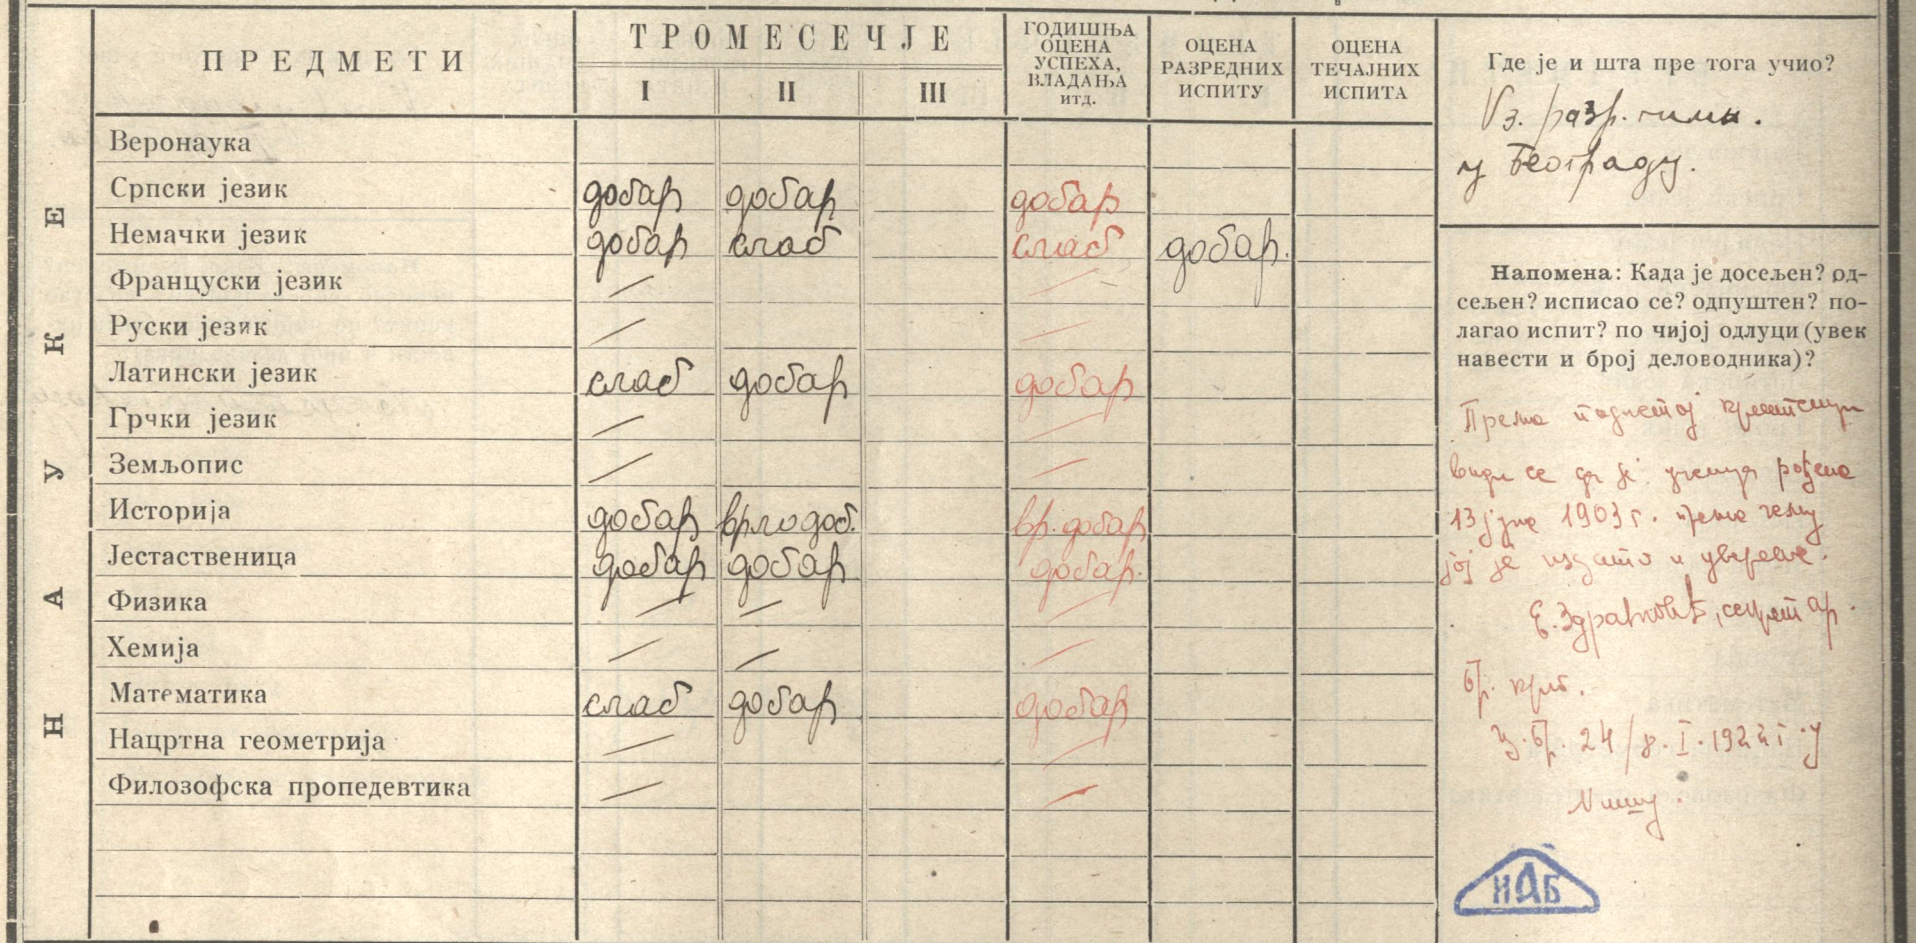 ПРЕДМЕТИ
ТРОМЕСЕЧЈЕ
I II III
ГОДИШЊА
ОЦЕНА
УСПЕХА,
ВЛАДАЊА
ИТД.
ОЦЕНА
РАЗРЕДНИХ
ИСПИТУ
ОЦЕНА
ТЕЧАЈНИХ
ИСПИТА
НАУКЕ
Веронаука
Српски језик добар добар добар
Немачки језик добар слаб слаб добар.
Француски језик
Руски језик
Латински језик слаб добар добар
Грчки језик
Земљопис
Историја добар врло доб. вр. добар
Јестаственица добар добар добар.
Физика
Хемија
Математика слаб добар добар
Нацртна геометрија
Филозофска пропедевтика
Где је и шта пре тога учио?
разр. гимн.
у Београду.
Напомена: Када је досељен? од-
сељен? исписао се? одпуштен? по-
лагао испит? по чијој одлуци (увек
навести и број деловодника)?
Према поднетој
види се да је рођена
13 јуна 1903 г. према чему
јој је издато и уверење.
Е. Здравковић, секретар.
Бр.
бр. 24/8. I. 1922 г. у
Нишу.
НАБ